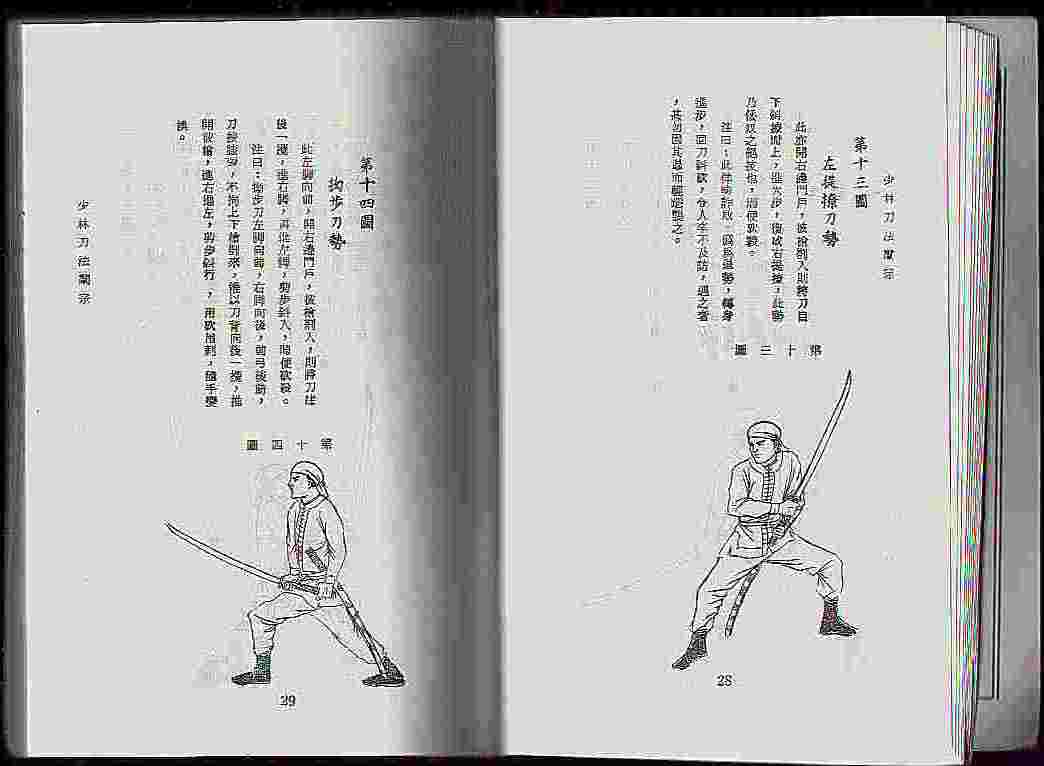 少林刀法闡宗
第十三圖
左提撩刀勢
此亦開右邊門戶，彼槍劄入則將刀自
下斜撩而上，進步，復或右提撩，此勢
乃倭奴之絕技也，用便砍殺。
注曰：此詐敗，偽為退勢，轉身
進步，回刀斜砍，令人卒不及防，遇之者
，甚勿因其退而輕襲之。
第十三圖
28
第十四圖
拗步刀勢
此左腳向前，開右邊門戶，彼槍劄入，則將刀往
後一攪，進右腳，再進左腳，拗步斜入，隨便砍殺。
注曰：拗步刀左脚向前，右脚向後，弓後，
刀按膝旁，不拘上下槍劄來，惟以刀背向後一攪，推
開彼槍，進右進左，拗步斜行，用砍用刺，隨手變
換。
第十四圖
少林刀法闡宗
29